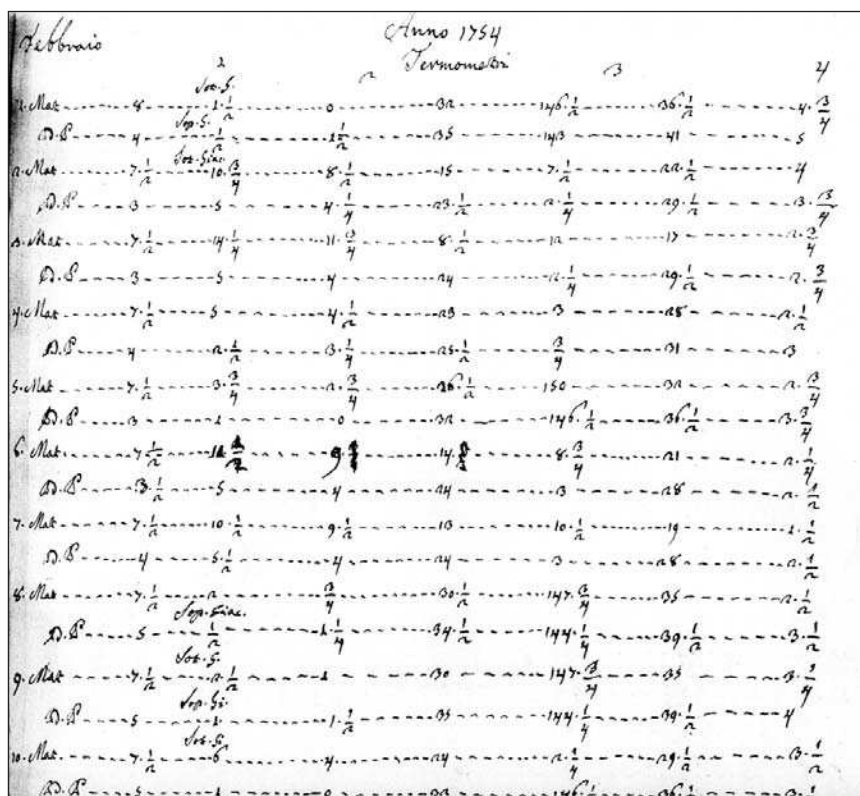 Febbraio Anno 1754
Termometri
2 2 3 4
Sot. G.
1. Mat 8 1 1/2 0 32 146 1/2 36 1/2 4 3/4
Sop. G.
D. P 4 1/2 1 1/2 35 143 41 5
Sot. Giac.
2. Mat 7 1/2 10 3/4 8 1/2 15 7 1/2 22 1/2 4
D. P 3 5 4 1/4 23 1/2 2 1/4 29 1/2 3 3/4
3. Mat 7 1/2 14 1/4 11 3/4 8 1/2 12 17 2 3/4
D. P 3 5 4 24 2 1/4 29 1/2 2 3/4
4. Mat 7 1/2 5 4 1/2 23 3 28 2 1/2
D. P 4 2 1/2 3 1/4 25 1/2 3/4 31 3
5. Mat 7 1/2 3 3/4 2 3/4 26 1/2 150 32 2 3/4
D. P 3 1 0 32 146 1/2 36 1/2 3 3/4
6. Mat 7 1/2 9 14 8 3/4 21 2 1/4
D. P 3 1/2 5 4 24 3 28 2 1/2
7. Mat 7 1/2 10 1/2 9 1/2 13 10 1/2 19 1 1/2
D. P 4 5 1/2 4 24 3 28 2 1/2
8. Mat 7 1/2 2 3/4 30 1/2 147 3/4 35 2 1/2
Sop. Giac.
D. P 5 1/2 1 1/4 34 1/2 144 1/4 39 1/2 3 1/2
Sot. G.
9. Mat 7 1/2 2 1/2 1 30 147 3/4 35 3 1/4
Sop. Gi.
D. P 5 1 1 1/2 35 144 1/4 39 1/2 4
Sot. G.
10. Mat 7 1/2 6 4 24 2 1/4 29 1/2 3 1/2
D. P 5 1 146 1/2 36 1/2